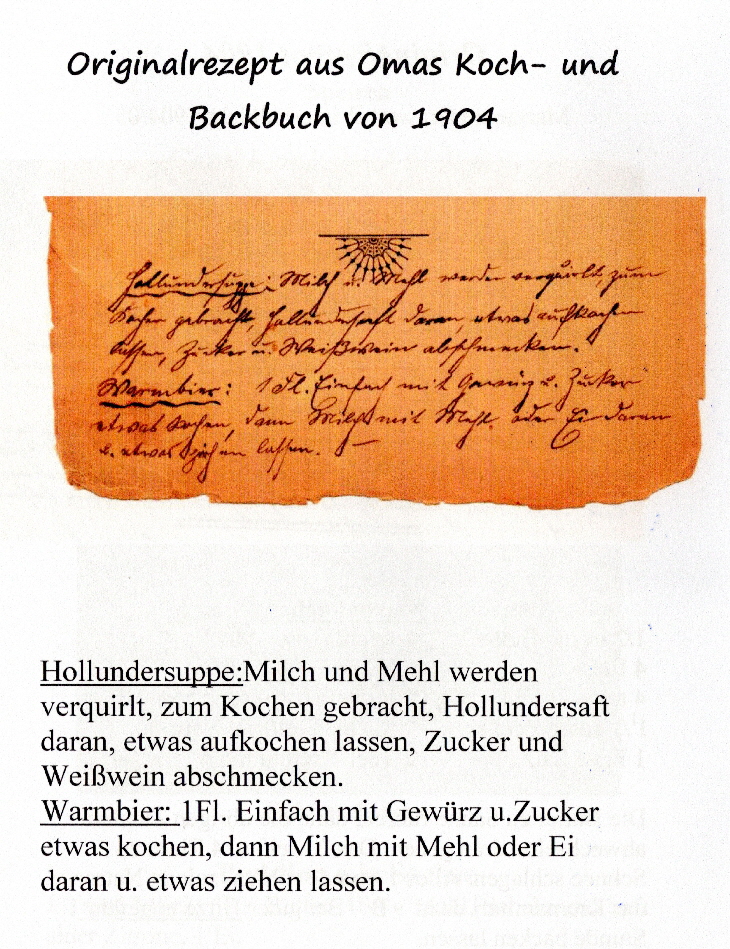 Originalrezept aus Omas Koch- und
Backbuch von 1904
Hollundersuppe: Milch u. Mehl werden verquirlt, zum
Kochen gebracht, Hollundersaft daran, etwas aufkochen
lassen, Zucker u. Weißwein abschmecken.
Warmbier: 1 Fl. Einfach mit Gewürz u. Zucker
etwas kochen, dann Milch mit Mehl oder Ei daran
u. etwas ziehen lassen.
Hollundersuppe:Milch und Mehl werden
verquirlt, zum Kochen gebracht, Hollundersaft
daran, etwas aufkochen lassen, Zucker und
Weißwein abschmecken.
Warmbier: 1Fl. Einfach mit Gewürz u.Zucker
etwas kochen, dann Milch mit Mehl oder Ei
daran u. etwas ziehen lassen.